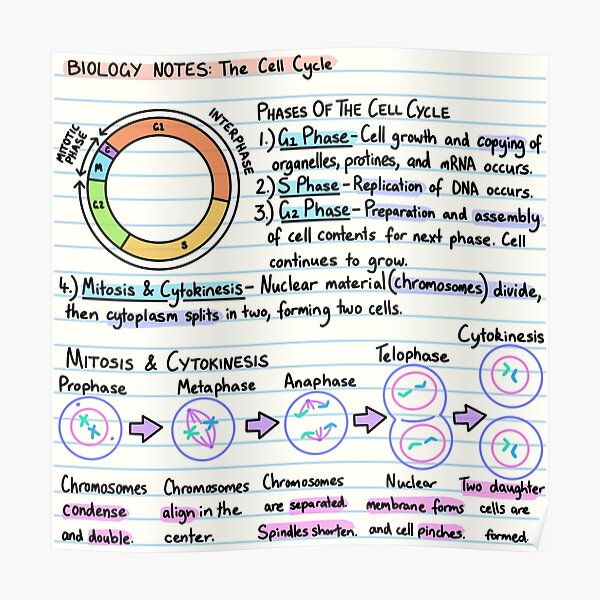 BIOLOGY NOTES: The Cell Cycle
MITOTIC
PHASE
INTERPHASE
G1
C
M
G2
S
PHASES OF THE CELL CYCLE
1.) G1 Phase - Cell growth and copying of
organelles, protines, and mRNA occurs.
2.) S Phase - Replication of DNA occurs.
3.) G2 Phase - Preparation and assembly
of cell contents for next phase. Cell
continues to grow.
4.) Mitosis & Cytokinesis - Nuclear material (chromosomes) divide,
then cytoplasm splits in two, forming two cells.
MITOSIS & CYTOKINESIS
Prophase
Metaphase
Anaphase
Telophase
Cytokinesis
Chromosomes
condense
and double.
Chromosomes
align in the
center.
Chromosomes
are separated.
Spindles shorten.
Nuclear
membrane forms
and cell pinches.
Two daughter
cells are
formed